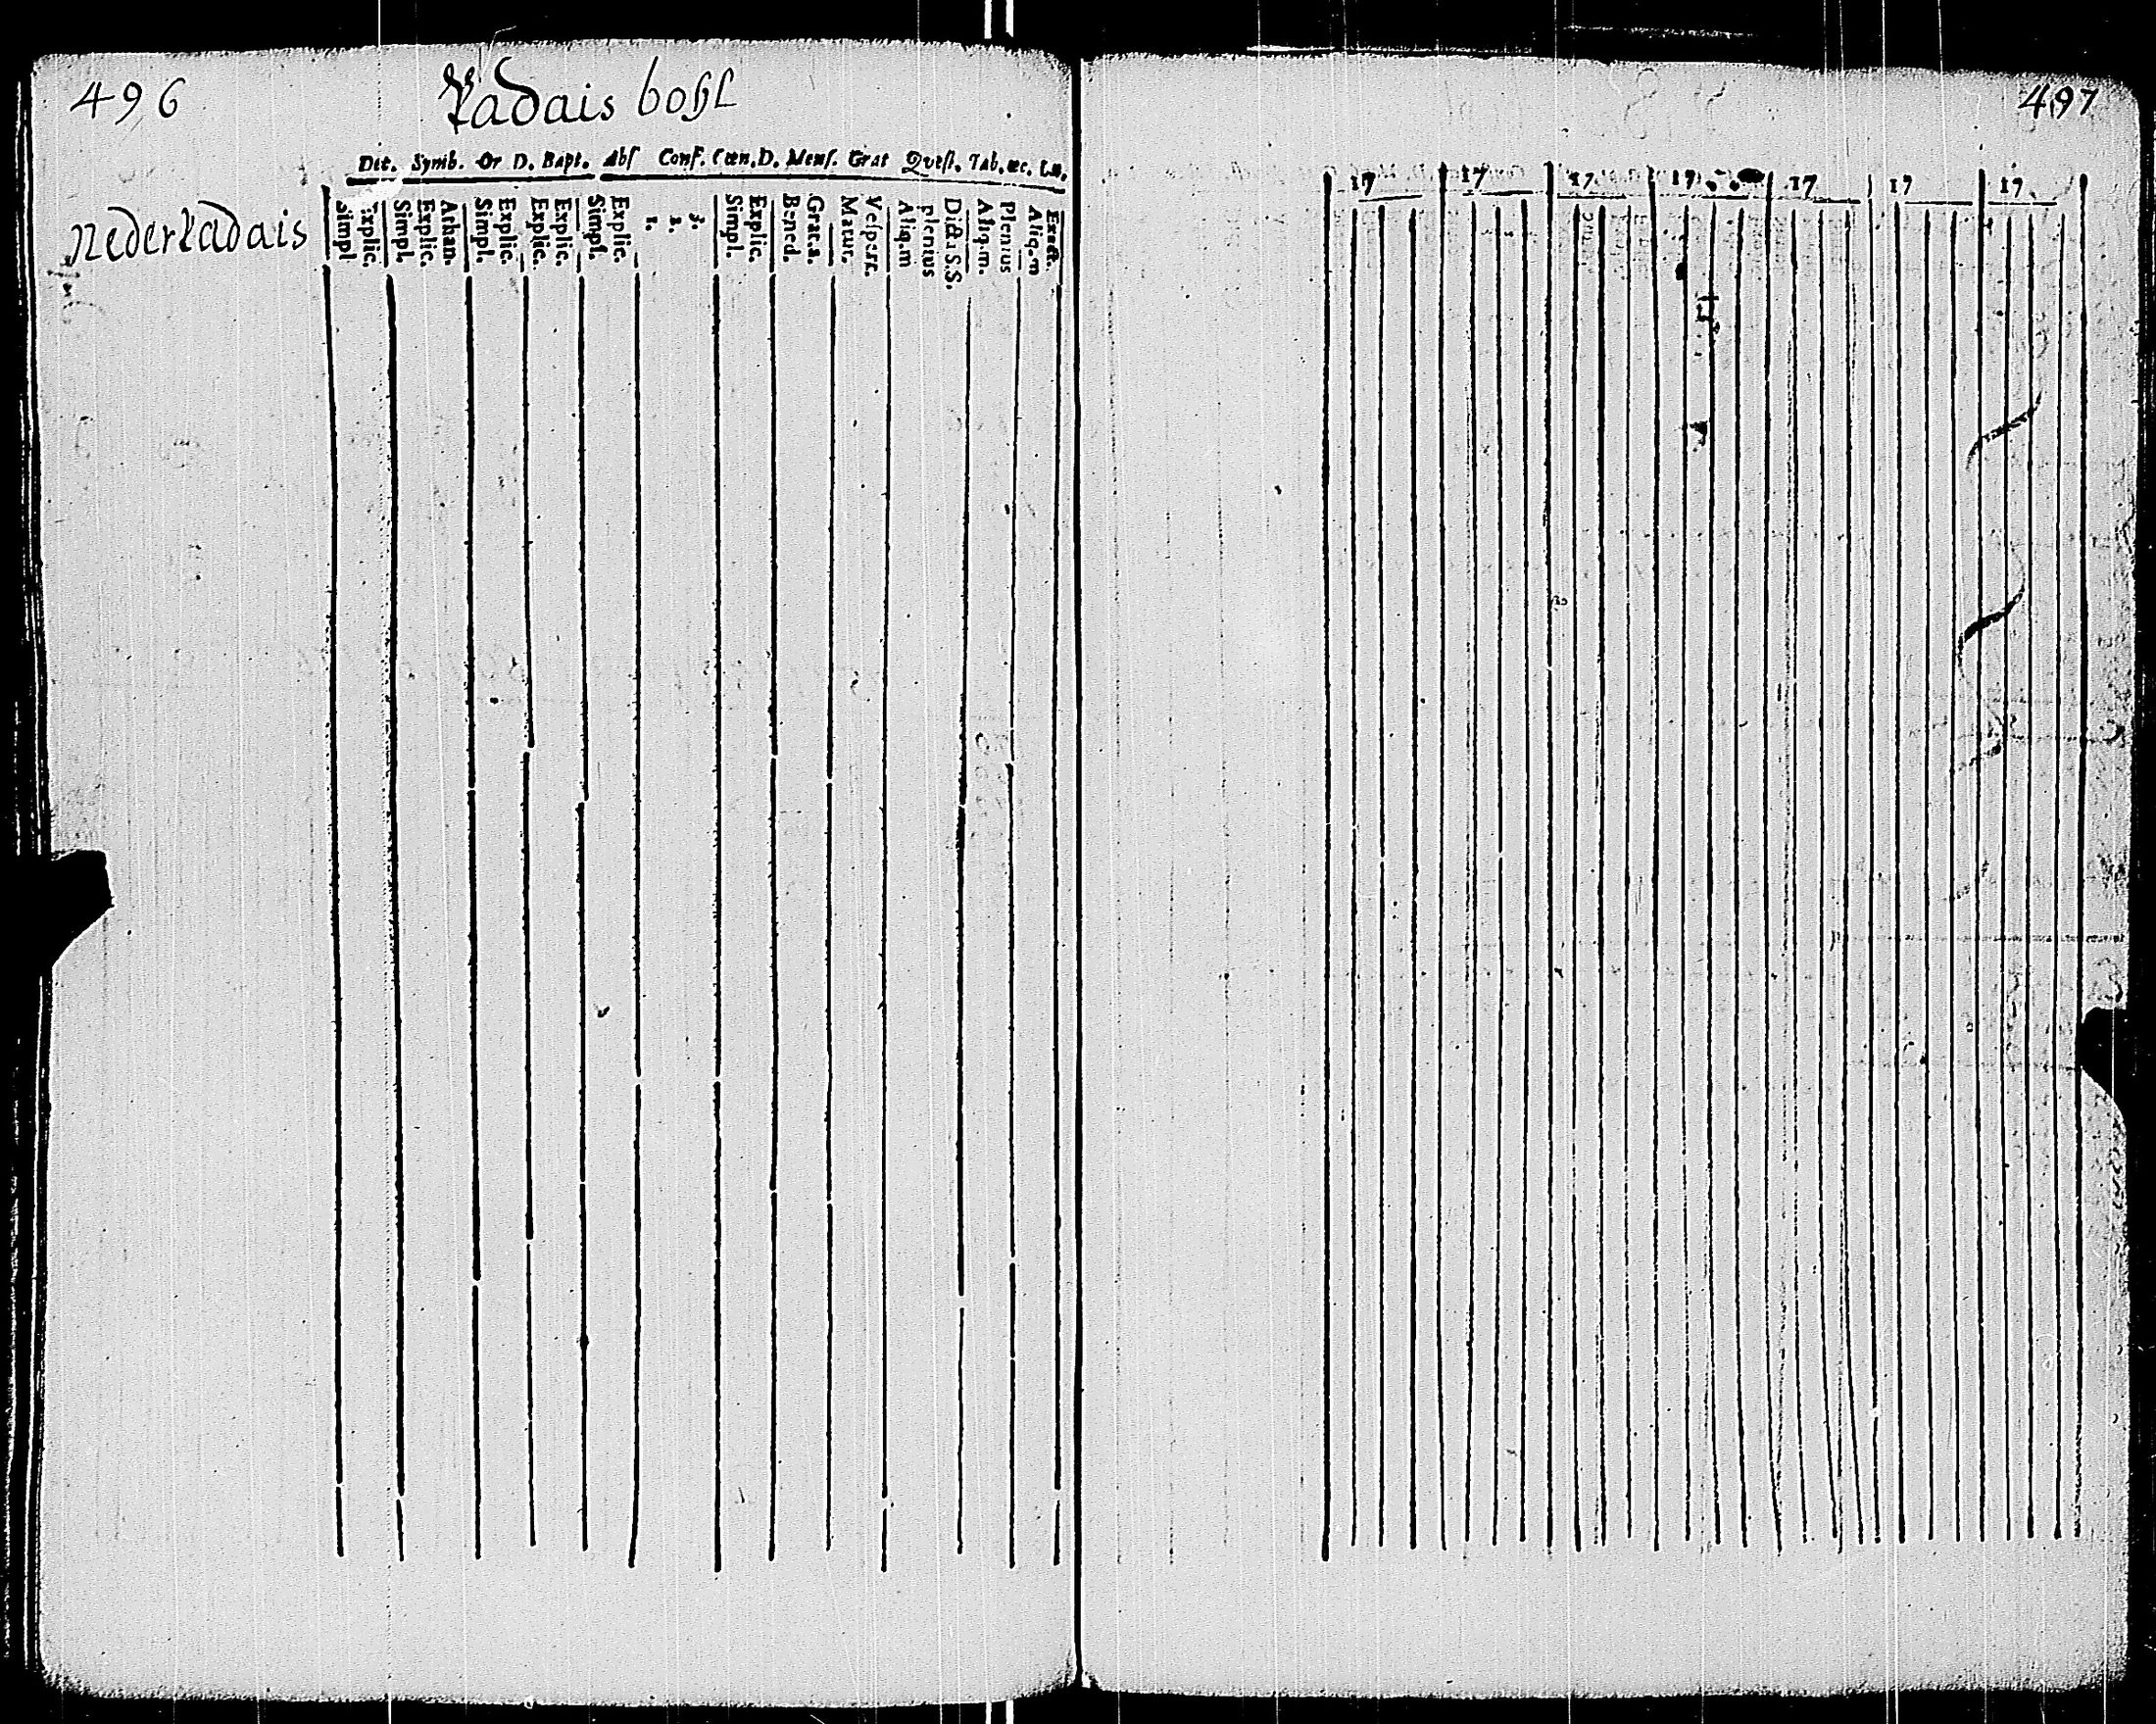 496
Kadais bohl
Dec. Symb. Or D. Bapt. Abſ Conf. Cœn. D. Menſ. Grat Quæſt. Tab. æc. Lu.
Nederkadais
Simpl
Explic.
Simpl.
Explic.
Athan.
Simpl.
Explic.
Explic.
Explic.
Simpl.
Explic.
1.
2.
3.
Simpl.
Explic.
Bened.
Grat.s.
Matur.
Veſpert.
Aliq.m
plenius
Dicta S.S.
Aliq.m.
Plenius
Aliq.m
Exacte.
497
17 17 17 17 17 17 17